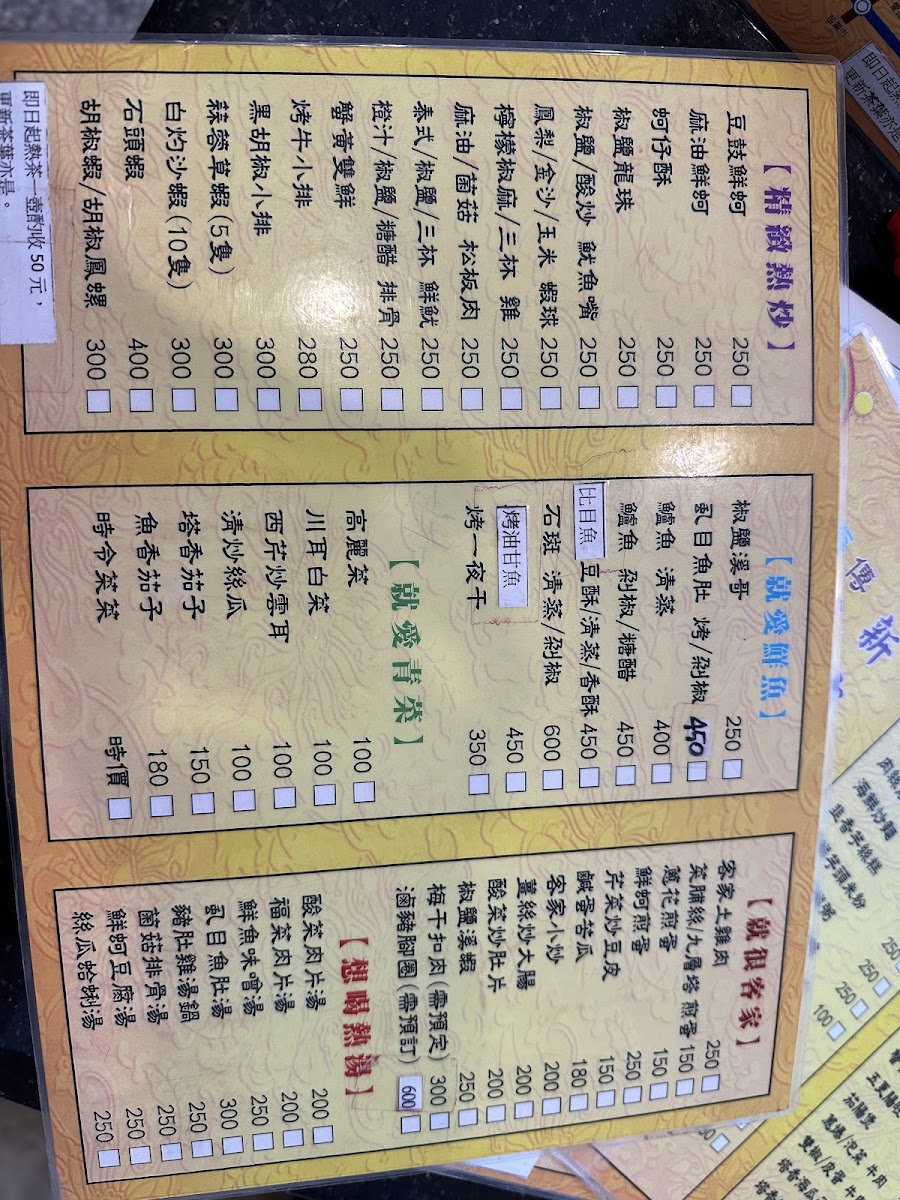 【精緻熱炒】
豆鼓鮮蚵 250
麻油鮮蚵 250
蚵仔酥 250
椒鹽龍珠 250
椒鹽/酸炒 魷魚嘴 250
鳳梨/金沙/玉米 蝦球 250
檸檬椒麻/三杯 雞 250
麻油/菌菇 松板肉 250
泰式/椒鹽/三杯 鮮魷 250
橙汁/椒鹽/糖醋 排骨 250
蟹黃雙鮮 250
烤牛小排 280
黑胡椒小排 300
蒜蓉草蝦(5隻) 300
白灼沙蝦(10隻) 300
石頭蝦 400
胡椒蝦/胡椒鳳螺 300
即日起熱茶一壺酌收 50 元，
更新茶葉亦是。
【就愛鮮魚】
椒鹽溪哥 250
虱目魚肚 烤/剁椒 450
鱸魚 清蒸 400
鱸魚 剁椒/糖醋 450
比目魚 豆酥/清蒸/香酥 450
石斑 清蒸/剁椒 600
烤油甘魚 450
烤一夜干 350
【就愛青菜】
高麗菜 100
川耳白菜 100
西芹炒雲耳 100
清炒絲瓜 100
塔香茄子 150
魚香茄子 180
時令菜菜 時價
【就很客家】
客家土雞肉 250
菜脯絲/九層塔 煎蛋 150
蔥花煎蛋 150
鮮蚵煎蛋 250
芹菜炒豆皮 150
鹹蛋苦瓜 180
客家小炒 200
薑絲炒大腸 200
酸菜炒肚片 200
椒鹽溪蝦 250
梅干扣肉(需預定) 300
滷豬腳圈(需預訂) 600
【想喝熱湯】
酸菜肉片湯 200
福菜肉片湯 200
鮮魚味噌湯 250
虱目魚肚湯 300
豬肚雞湯鍋 250
菌菇排骨湯 250
鮮蚵豆腐湯 250
絲瓜蛤蜊湯 250
即日起熱
更新茶葉亦是
傳
新
海鮮炒麵
250
250
100
50
茄腸煲